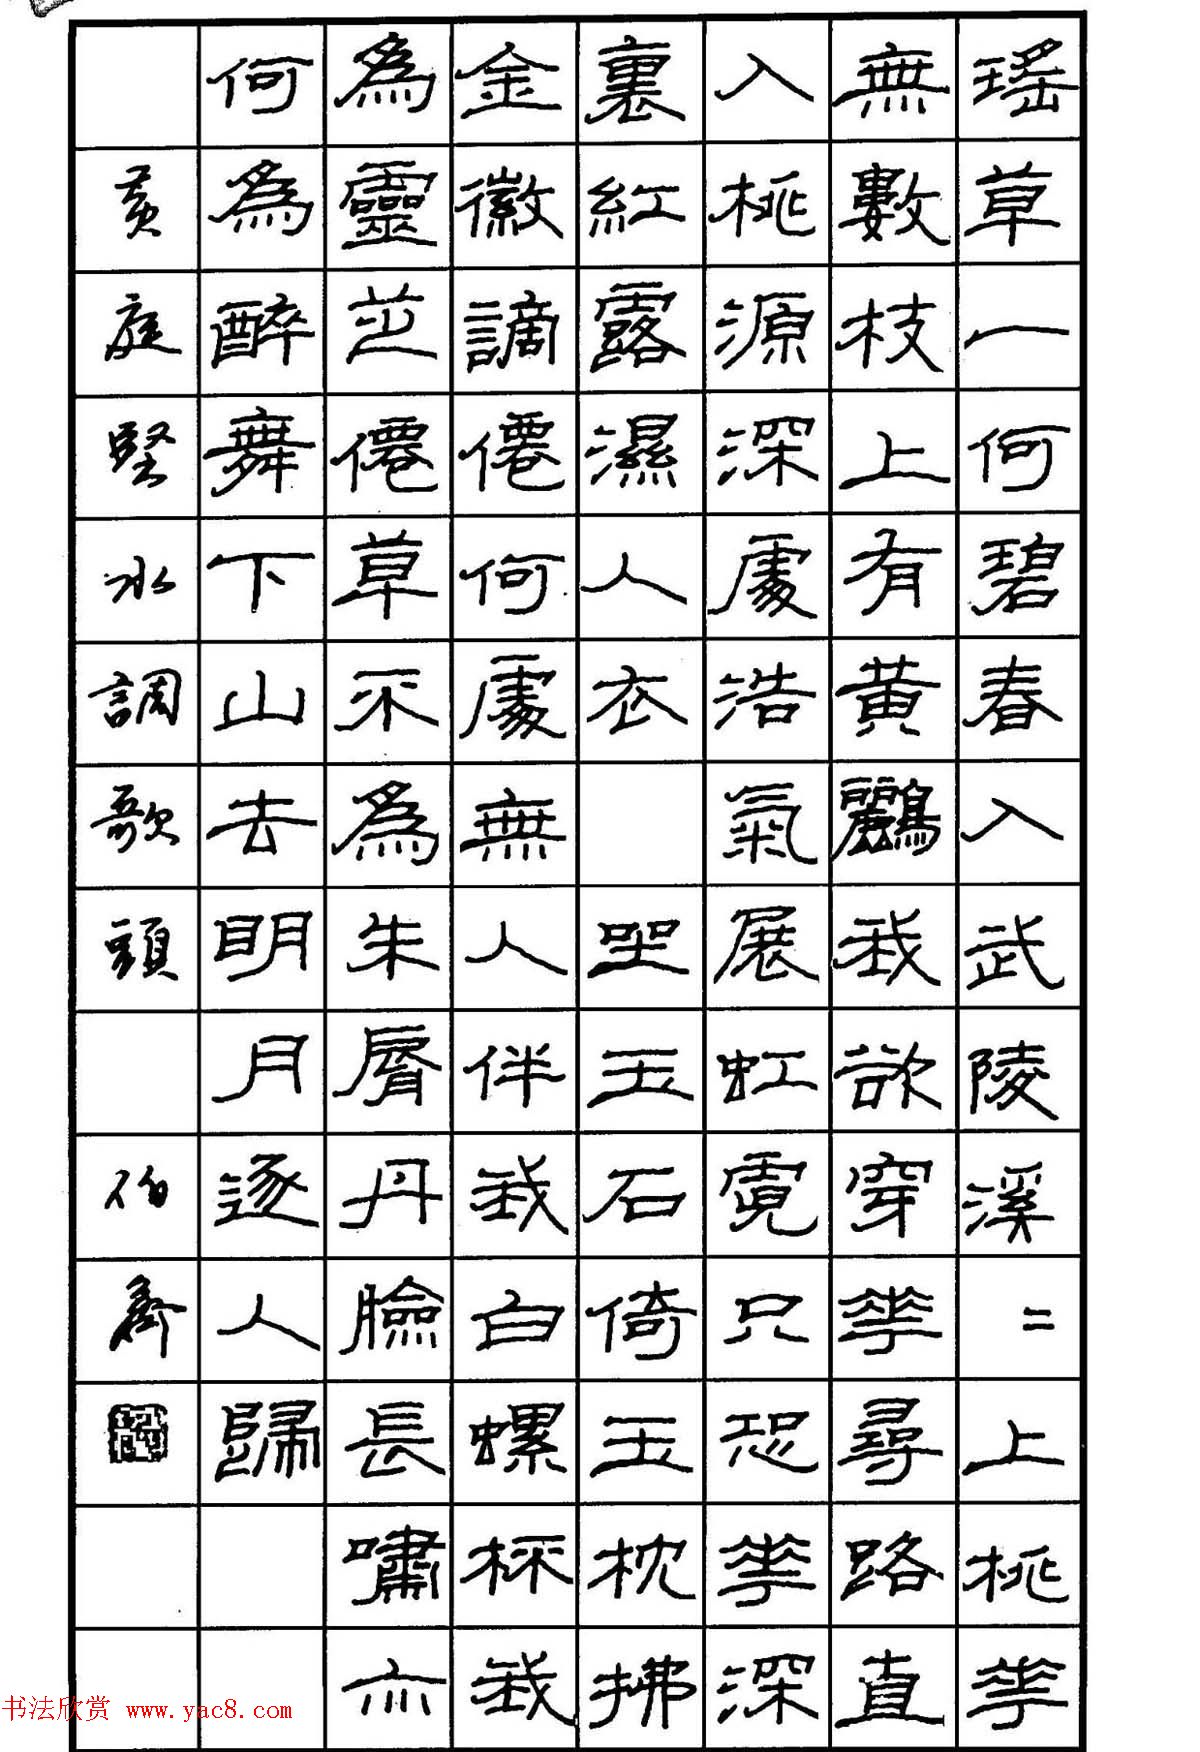 瑤草一何碧春入武陵溪〻上桃華
無數枝上有黃鸝我欲穿華尋路直
入桃源深處浩氣展虹霓只恐華深
裏紅露濕人衣 坐玉石倚玉枕拂
金徽謫僊何處無人伴我白螺杯我
為靈芝僊草不為朱脣丹臉長嘯亦
何為醉舞下山去明月逐人歸
黃庭堅水調歌頭
书法欣赏 www.yac8.com